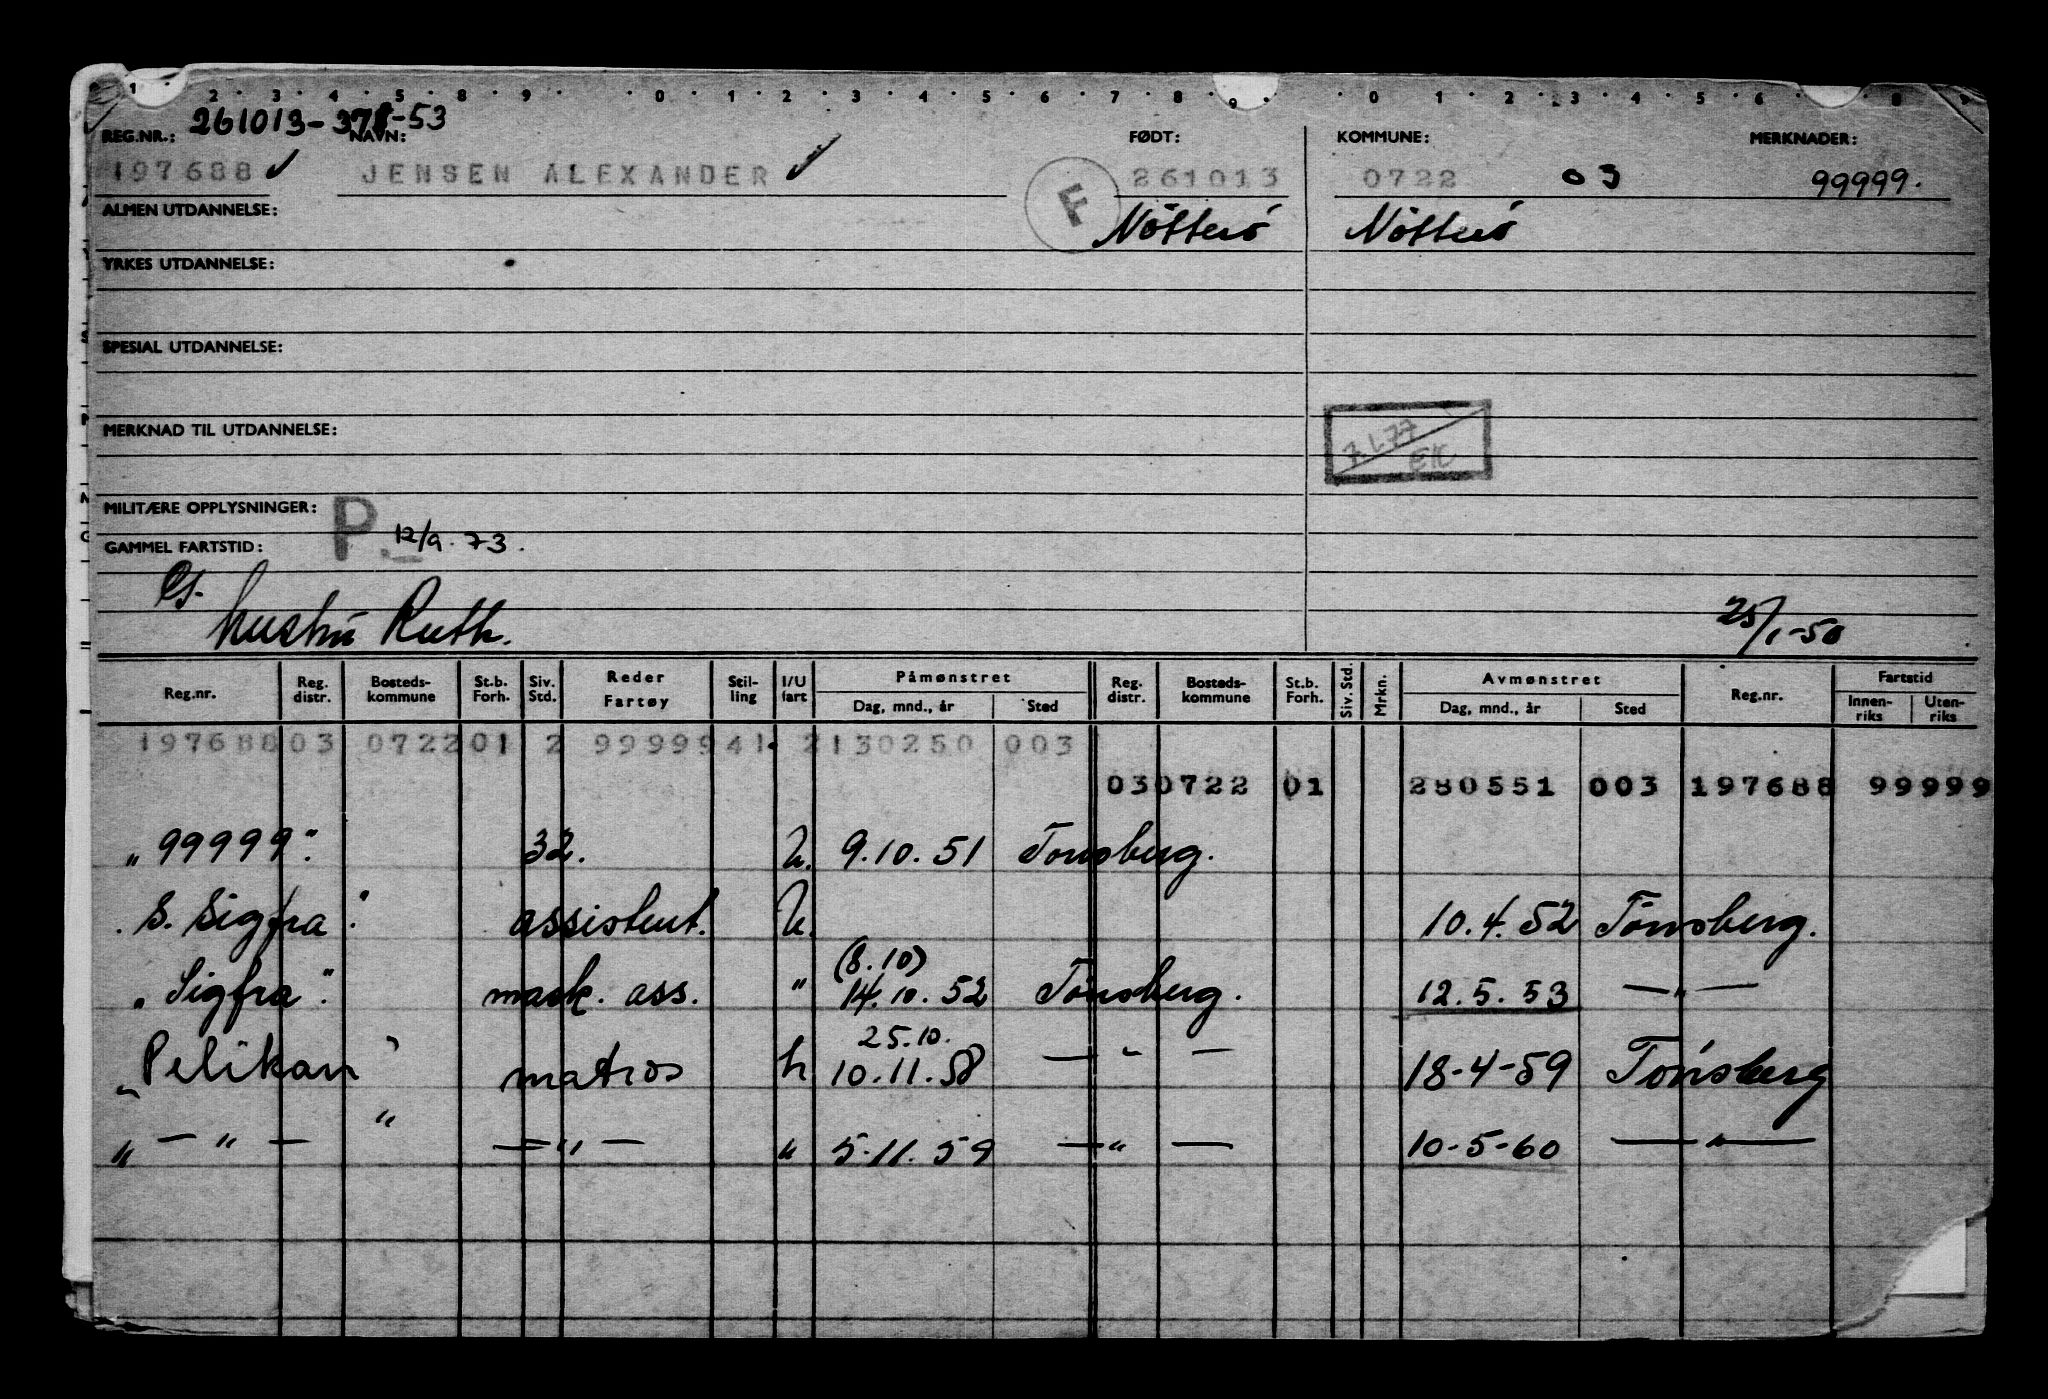 1 2 3 4 5 8 9 0 1 2 3 4 5 6 7 8 9 0 1 2 3 4 5 6 8
261013-378-53
REG.NR.: NAVN: FØDT: KOMMUNE: MERKNADER:
197688 ✓ JENSEN ALEXANDER ✓ F 261013 0722 03 99999.
ALMEN UTDANNELSE: Nötterö Nötterö
YRKES UTDANNELSE:
SPESIAL UTDANNELSE:
MERKNAD TIL UTDANNELSE:
7.1.77
EK
MILITÆRE OPPLYSNINGER:
P. 12/9.73.
GAMMEL FARTSTID:
hustru Ruth. 25/1-50
Reg.nr. Reg. distr. Bosteds-kommune St.b. Forh. Siv. Std. Reder Fartøy Stil-ling I/U fart Påmønstret Dag, mnd., år Sted Reg. distr. Bosteds-kommune St.b. Forh. Siv. Std. Mrkn. Avmønstret Dag, mnd., år Sted Reg.nr. Fartstid Innen-riks Uten-riks
197688 03 0722 01 2 99999 41 2 130250 003
03 0722 01 280551 003 197688 99999
"99999". 32. U. 9.10.51 Tönsberg.
"S. Sigfra". assistent. U. 10.4.52 Tönsberg.
(8.10)
"Sigfra". mask. ass. " 14.10.52 Tönsberg. 12.5.53 — " —
25.10.
"Pelikan" matros U 10.11.58 — " — 18-4-59 Tönsberg
" — " — " — " — " 5-11.59 — " — 10-5-60 — " —